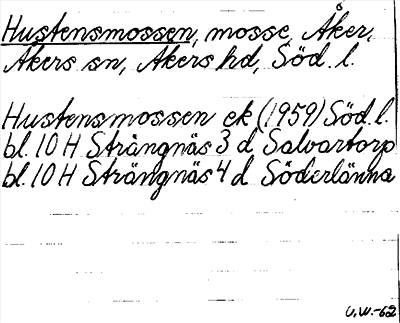 Hustensmossen, mosse, Åker,
Åkers sn, Åkers hd, Söd. l.
Hustensmossen ek (1959) Söd. l.
bl. 10 H Strängnäs 3 d Salvartorp
bl. 10 H Strängnäs 4 d Söderlänna
U.W.-62